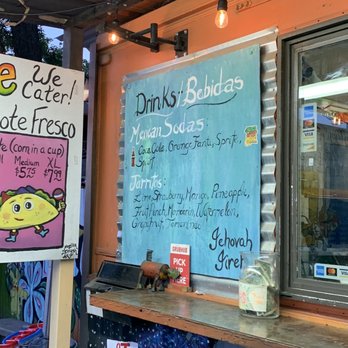 We
Cater!
ote Fresco
(corn in a cup)
Medium XL
$7.99
Drinks: Bebidas
Mexican Sodas
Coca Cola, Orange Fanta, Sprite,
Squirt
Jarritos:
Lime, Strawberry, Mango, Pineapple,
Fruit Punch, Mandarin, Watermelon,
Grapefruit, Tamarindo
Jehovah
Jireh
PICK